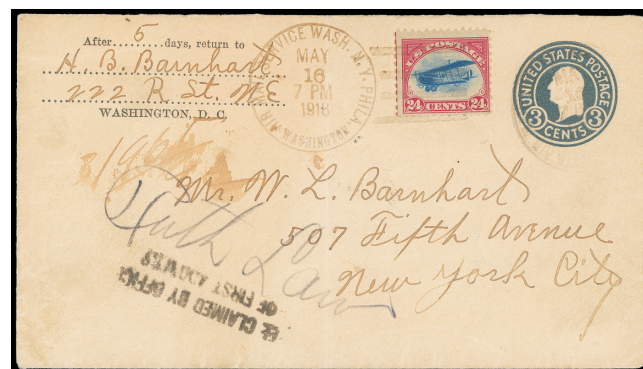 After 5 days, return to
H. B. Barnhart
222 R St. N E
WASHINGTON, D. C.
AIR MAIL SERVICE WASH. N.Y. PHILA.
MAY
16
7 PM
1918
WASHINGTON
U.S. POSTAGE
24 CENTS 24
UNITED STATES POSTAGE
3 CENTS 3
Mr. W. L. Barnhart
507 Fifth Avenue
New York City
Ruth Law
CLAIMED BY OFFICE
OF FIRST ADDRESS